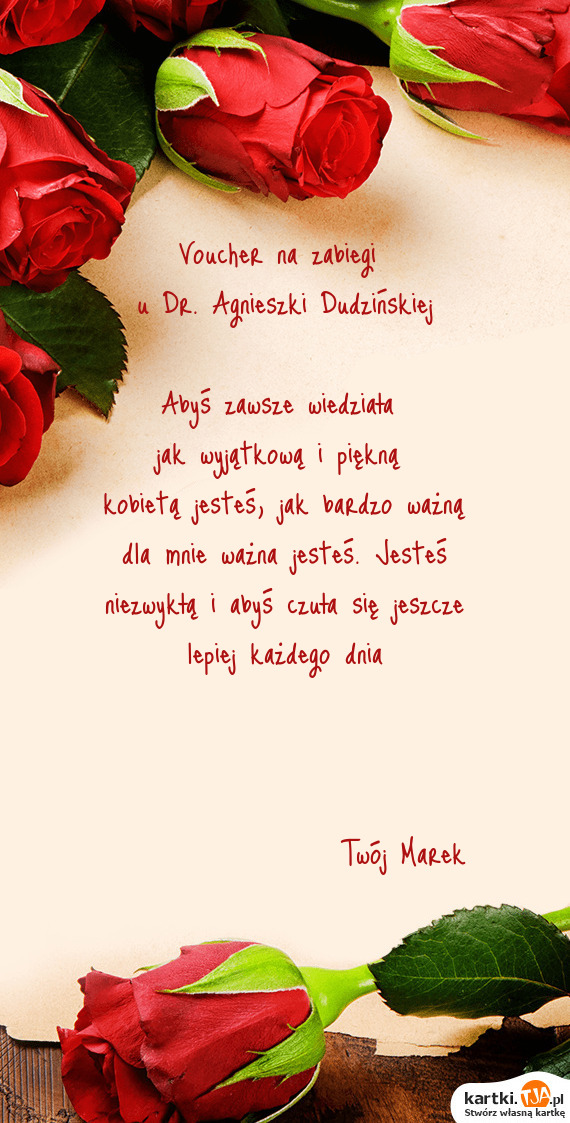 Voucher na zabiegi
u Dr. Agnieszki Dudzińskiej
Abyś zawsze wiedziała
jak wyjątkową i piękną
kobietą jesteś, jak bardzo ważną
dla mnie ważna jesteś. Jesteś
niezwykłą i abyś czuła się jeszcze
lepiej każdego dnia
Twój Marek
kartki.TJA.pl
Stwórz własną kartkę